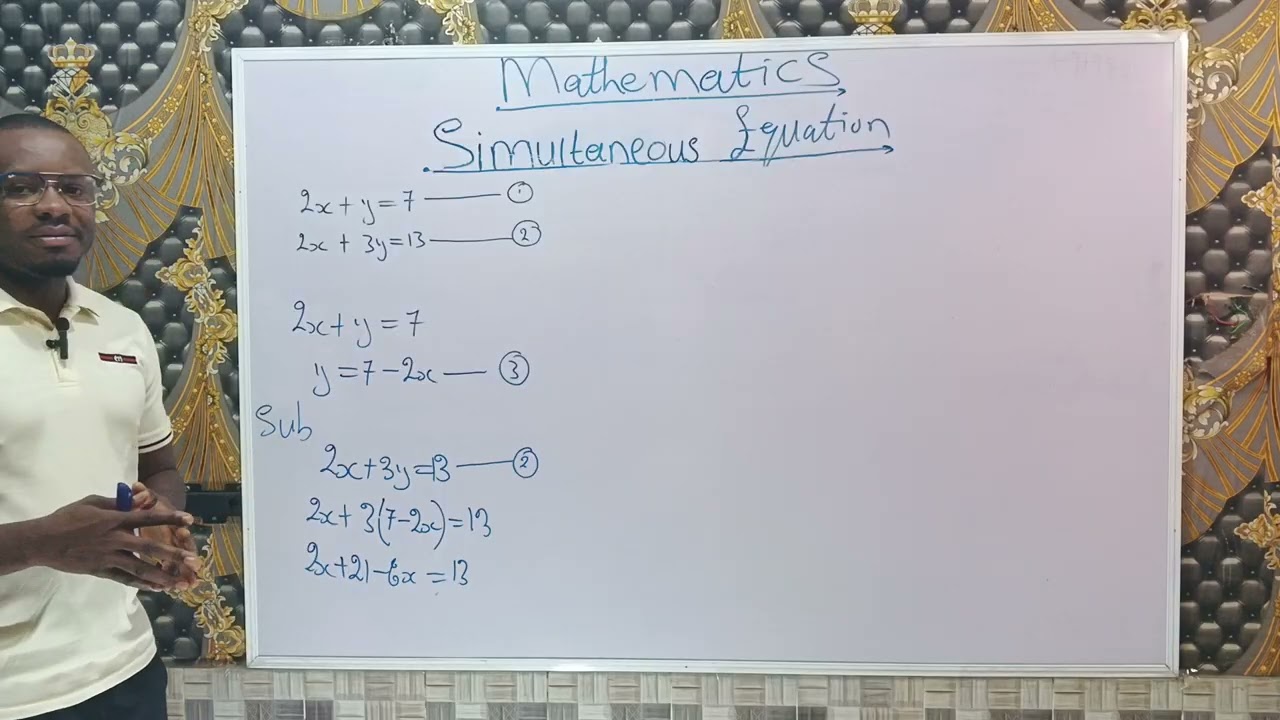 Mathematics
Simultaneous Equation
2x + y = 7 —— ①
2x + 3y = 13 —— ②
2x + y = 7
y = 7 - 2x —— ③
Sub
2x + 3y = 13 —— ②
2x + 3(7 - 2x) = 13
2x + 21 - 6x = 13